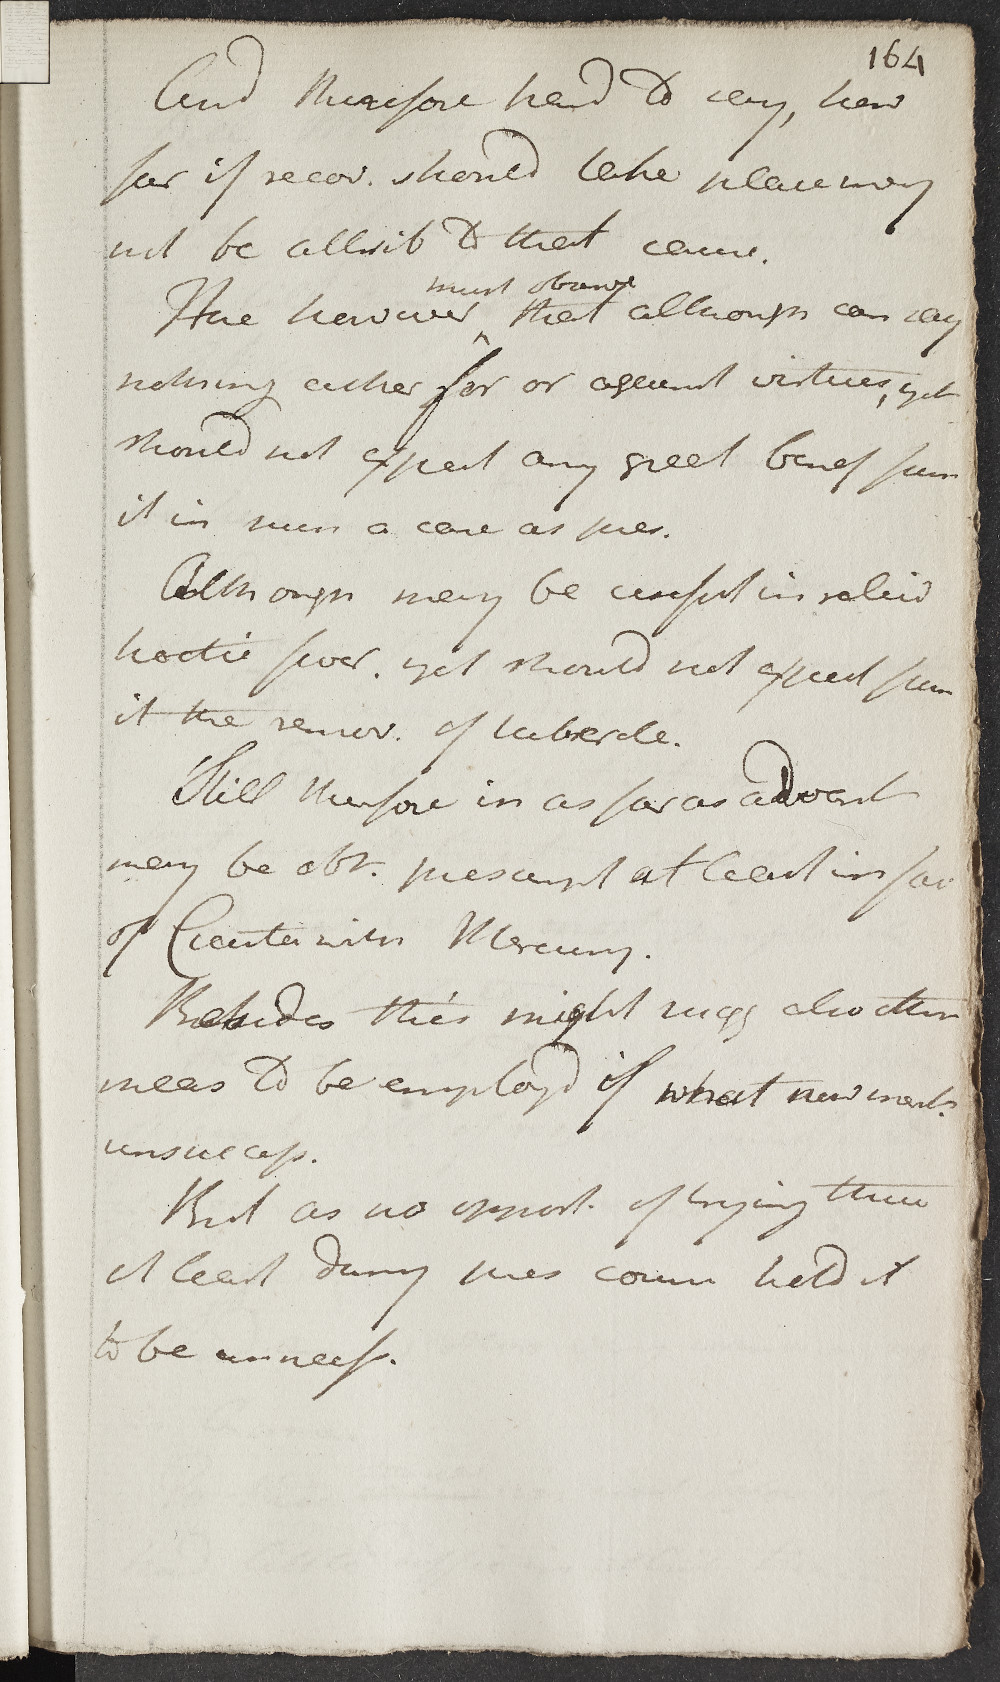 164
And therefore hard to say, how
far if recov. should take place may
not be attrib to that cause.
must observe
Here however ^ that although can say
nothing either for or against virtues, yet
should not expect any great benef from
it in such a case as pres.
Although may be useful in reliev
hectic fever. yet should not expect from
it the remov. of tubercle.
Still therefore in as far as advant
may be obt. prescript at least in fav
of Cicuta with Mercury.
Besides this might sugg also other
meas to be employd if what now ment.
unsuccess.
But as no opport. of trying these
at least during pres course held it
to be unnecess.